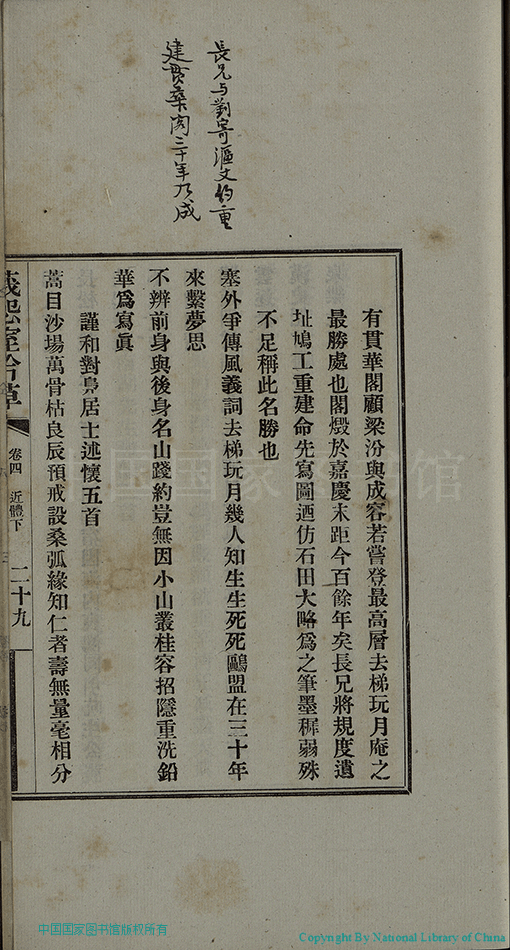 長兄与劉寄漚丈約重
建貫桑閣三十年乃成
有貫華閣顧梁汾與成容若嘗登最高層去梯玩月庵之
最勝處也閣燬於嘉慶末距今百餘年矣長兄將規度遺
址鳩工重建命先寫圖迺仿石田大略為之筆墨穉弱殊
不足稱此名勝也
塞外爭傳風義詞去梯玩月幾人知生生死死鷗盟在三十年
來繫夢思
不辨前身與後身名山踐約豈無因小山叢桂容招隱重洗鉛
華爲寫眞
謹和對鳧居士述懷五首
蒿目沙場萬骨枯良辰預戒設桑弧緣知仁者壽無量毫相分
卷四 近體下 二十九
中国国家图书馆版权所有
Copyright By National Library of China